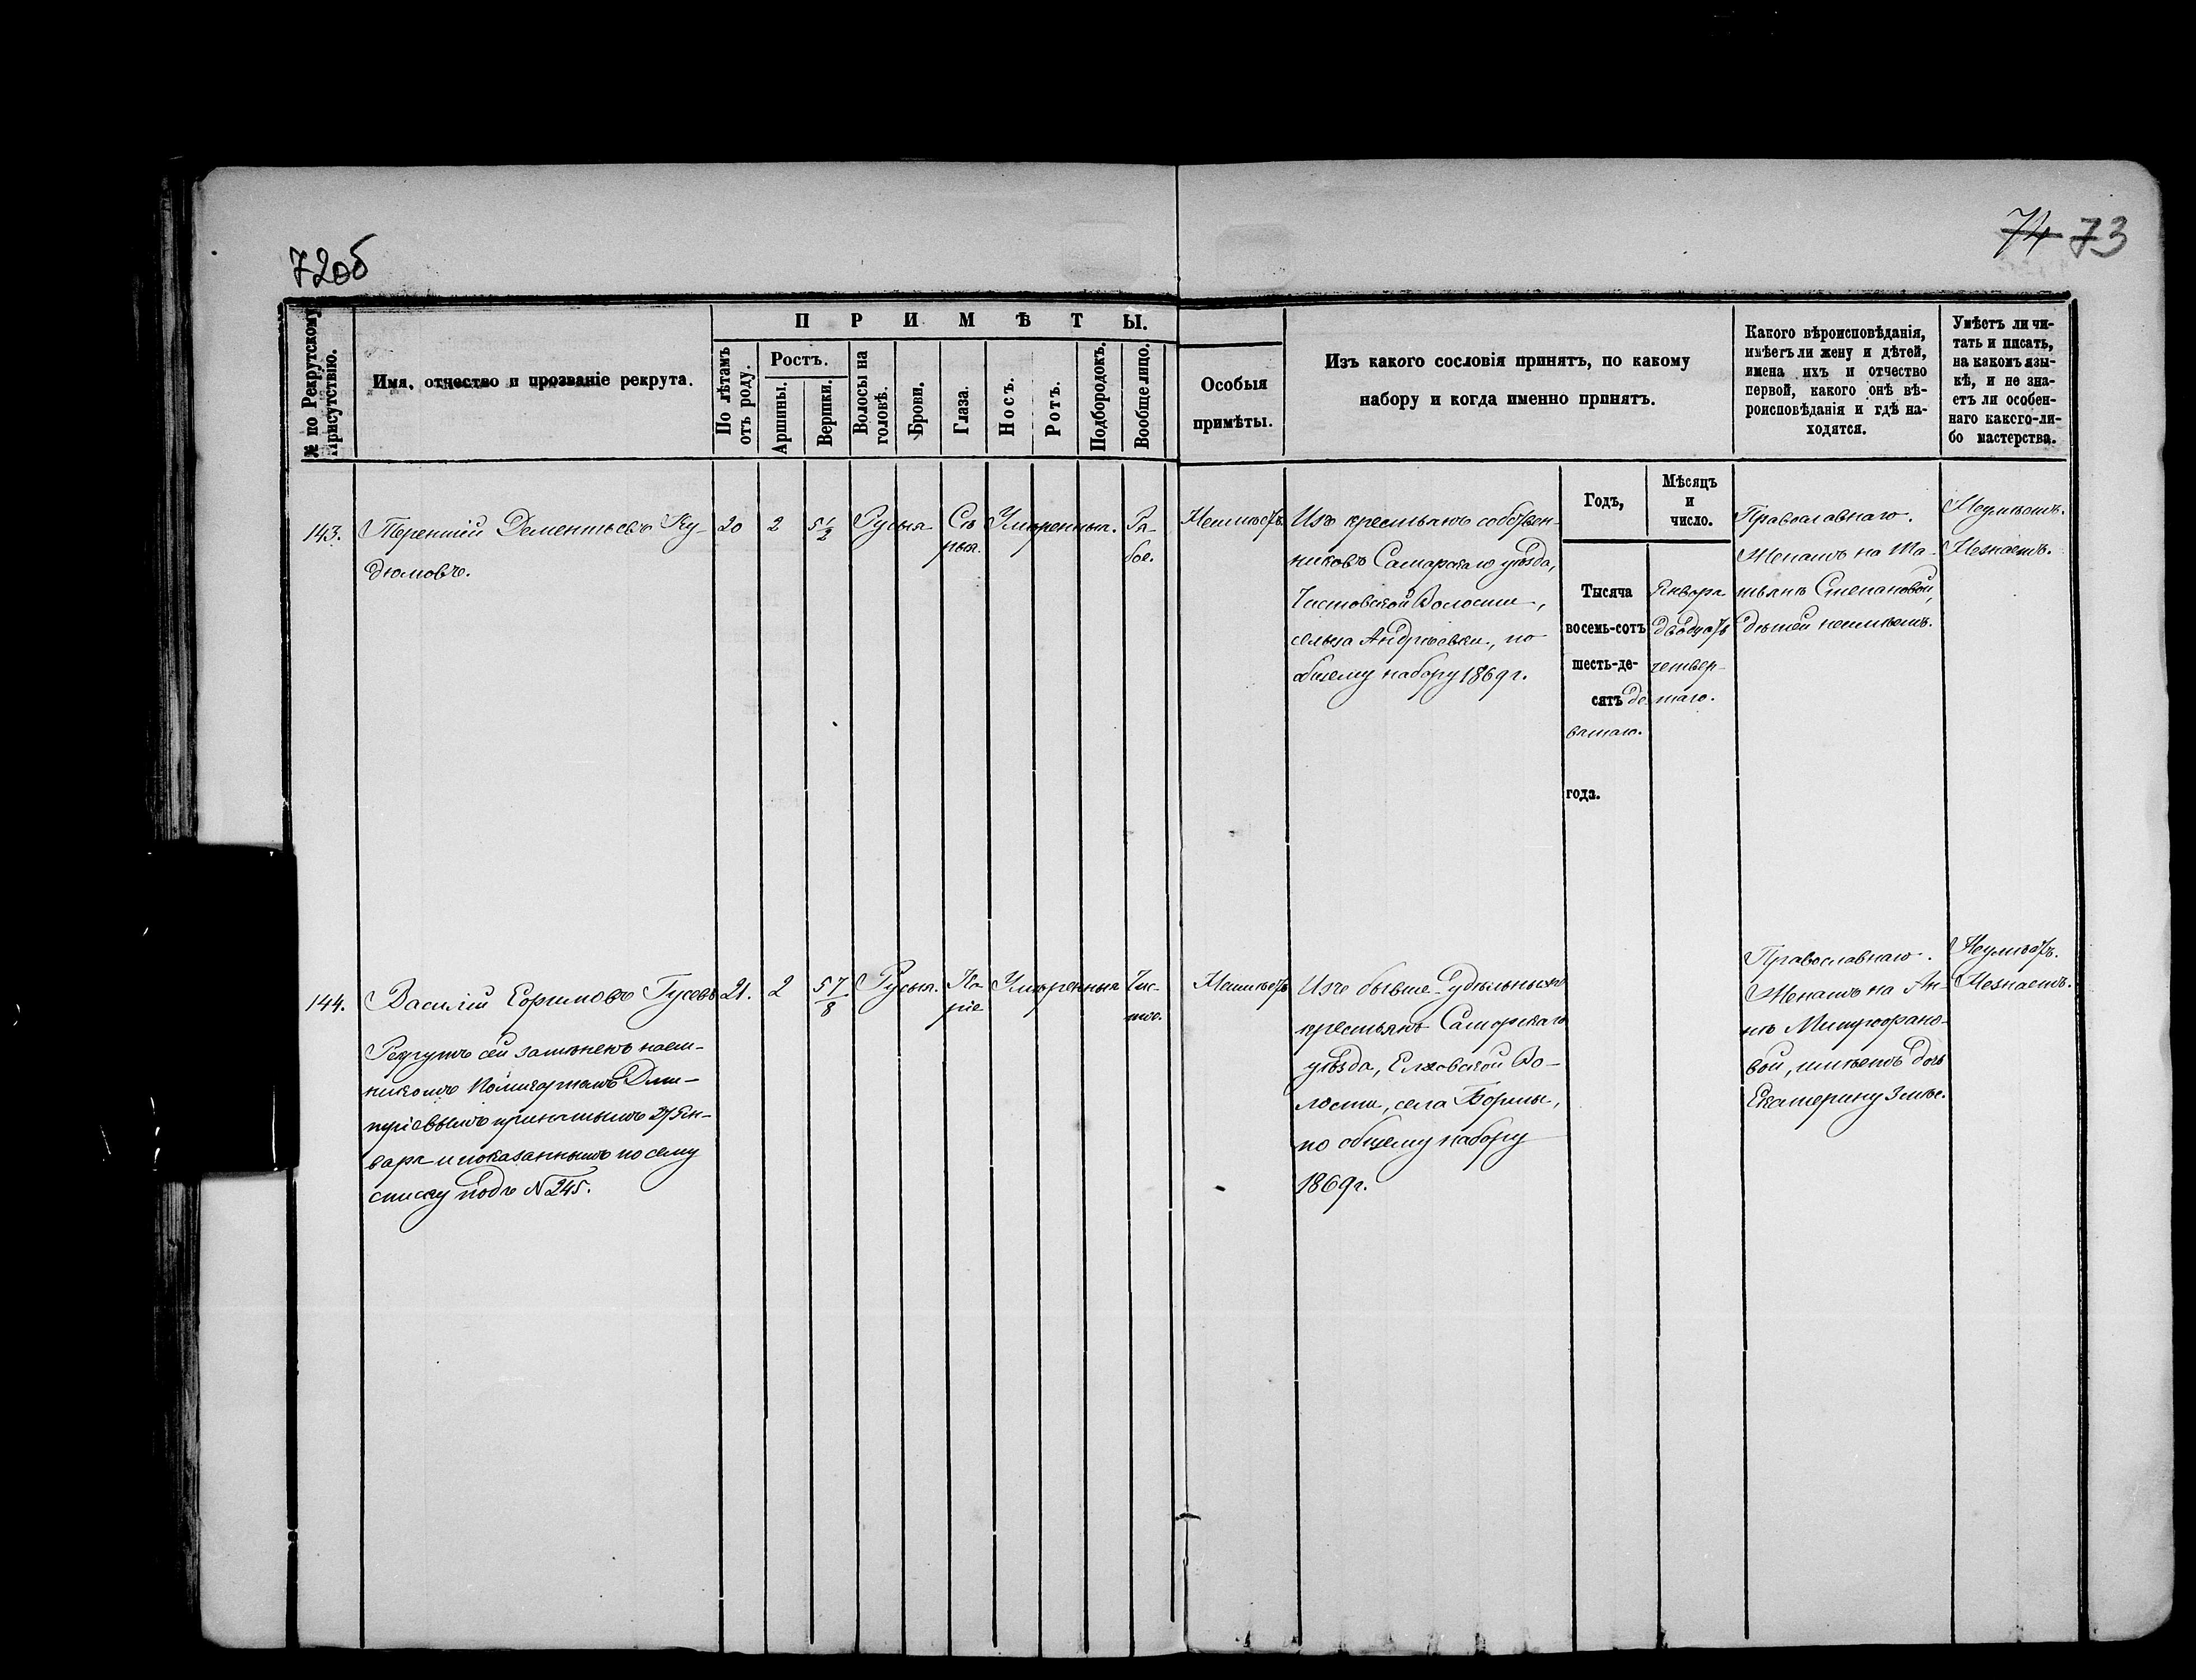 72об
74 73
№ по Рекрутскому
Присутствію.
Имя, отчество и прозваніе рекрута.
ПРИМѢТЫ.
По лѣтамъ
отъ роду.
Ростъ.
Аршины.
Вершки.
Волосы на
головѣ.
Брови.
Глаза.
Носъ.
Ротъ.
Подбородокъ.
Вообще лицо.
Особыя
примѣты.
Изъ какого сословія принятъ, по какому
набору и когда именно принятъ.
Какого вѣроисповѣданія,
имѣетъ ли жену и дѣтей,
имена ихъ и отчество
первой, какого онѣ вѣ-
роисповѣданія и гдѣ на-
ходятся.
Умѣетъ ли чи-
тать и писать,
на какомъ язы-
кѣ, и не зна-
етъ ли особен-
наго какого-ли-
бо мастерства.
Годъ,
Мѣсяцъ
и
число.
143.
Терентій Дементьевъ Ку-
дюмовъ.
20
2
5 1/2
Русыя
Сѣ
рыя.
Умѣренныя.
Ря-
бое.
Неимѣетъ
Изъ крестьянъ собствен-
никовъ Самарскаго уѣзда,
Чистовской Волости,
сельца Андреевки, по
общему набору 1869 г.
Тысяча
восемь-сотъ
шесть-де-
сятъ де
вятаго.
года.
Января
двадцать
четвер-
таго.
Православнаго.
Женатъ на Та-
тьянѣ Степановой,
дѣтей неимѣетъ.
Неумѣетъ.
Незнаетъ.
144.
Василій Ефимовъ Гусевъ
Рекрутъ сей замѣненъ наем-
никомъ Дми-
тріевымъ принятымъ 27 Ян-
варя и показаннымъ по сему
списку подъ № 245.
21.
2
5 7/8
Русыя.
Ка
ріе
Умѣренныя
Чис-
тое.
Неимѣетъ
Изъ бывше-удѣльныхъ
крестьянъ Самарскаго
уѣзда, Елховской Во-
лости, села Бормы,
по общему набору
1869 г.
Православнаго.
Женатъ на Ан-
нѣ Митрофано-
вой, имѣетъ дочь
Екатерину 3 мѣс.
Неумѣетъ.
Незнаетъ.